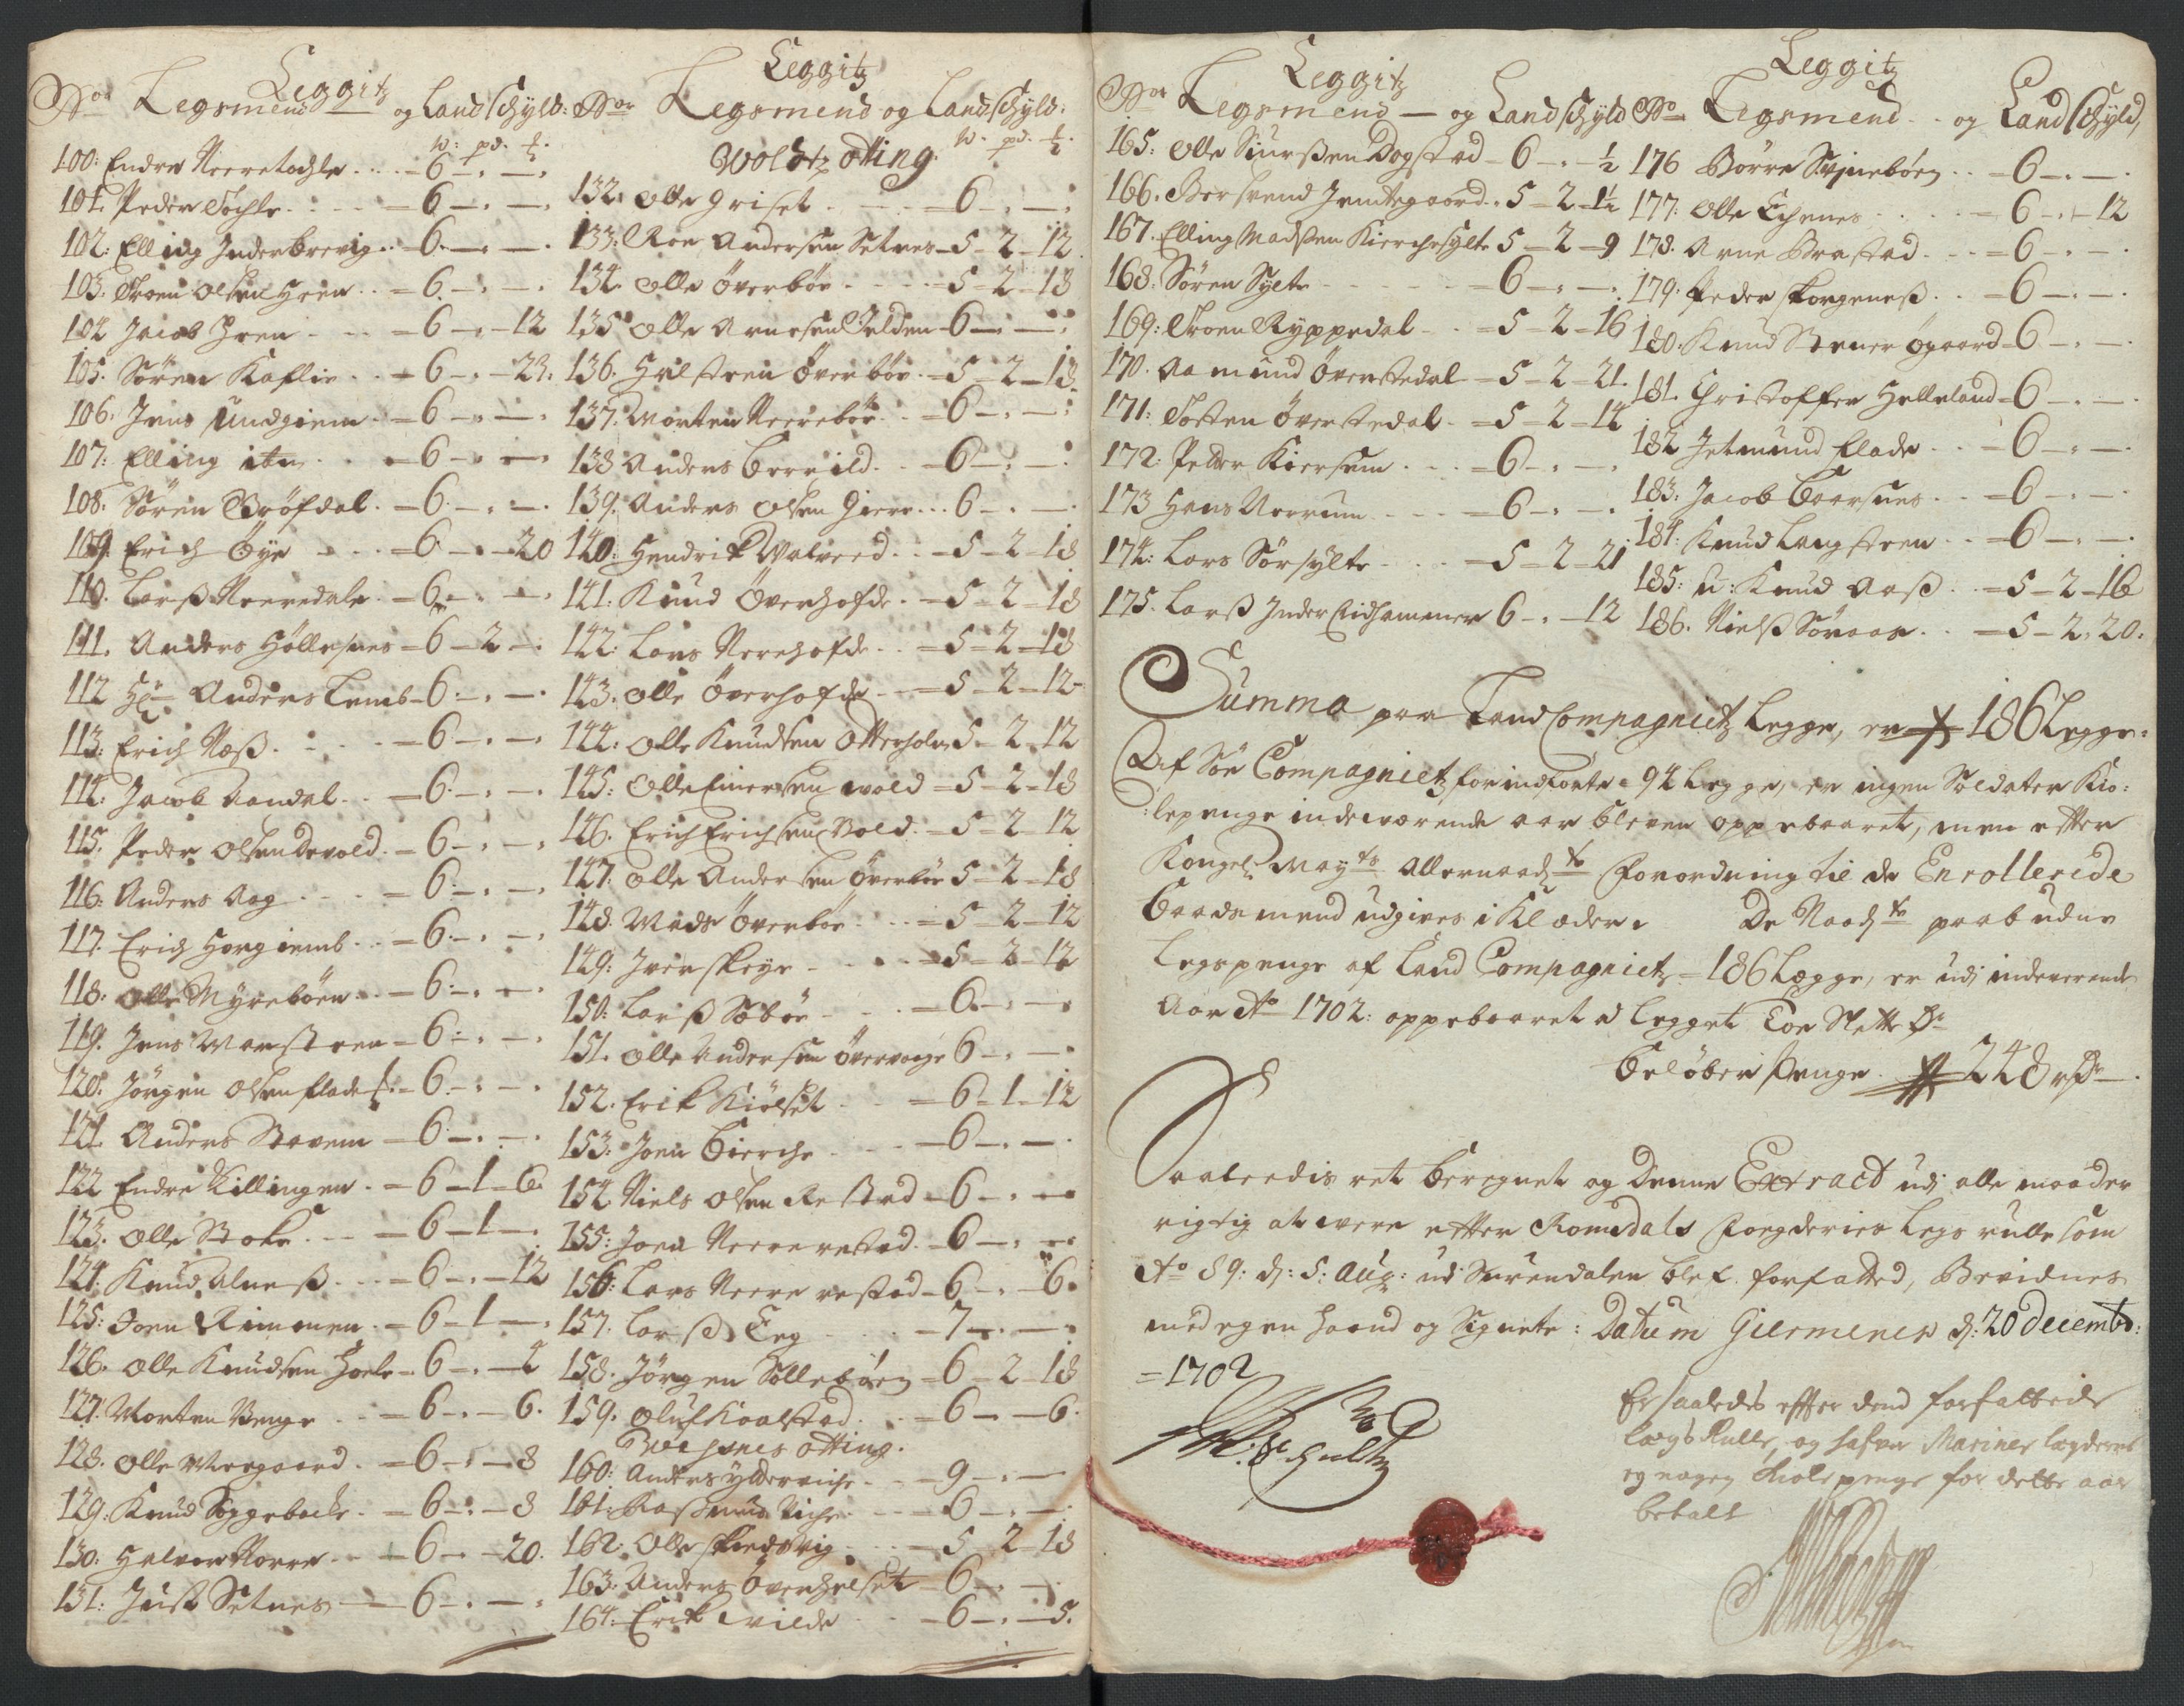 Leggitz
No Legsmend og Landschyld:
w: pd. ℔.
100: Endre Neretochle - 6 - . - .
101. Peder Tochle - 6 - . - .
102: Elling Inderbrevig - 6 - . - .
103. Troen Olsen Hren - 6 - . - .
104 Jacob Hren - 6 - . - 12
105. Sören Haflie - 6 - . - 23.
106. Jens Undgiem - 6 - . - .
107: Elling ibm - 6 - . - .
108. Sören Gröfdal - 6 - . - .
109. Erich Öye - 6 - . - 20
110. Larß Neredale - 6 - . - .
111. Anders Höllesnes - 6 - 2 - .
112 Hr Anders Lemb - 6 - . - .
113: Erich Næß - 6 - . - .
114. Jacob Aandal - 6 - . - .
115. Peder Olsen Devold - 6 - . - .
116. Anders Aag - 6 - . - .
117. Erich Horgiemb - 6 - . - .
118: Olle Myreböen - 6 - . - .
119. Jens Marstren - 6 - . - .
120. Jörgen Olsen Flade - 6 - . - .
121. Anders Stavem - 6 - . - .
122 Endre Killingen - 6 - 1 - 6
123. Olle Boke - 6 - 1 - .
124. Knud Alneß - 6 - . - 12
125: Joen Rimmen - 6 - 1 - .
126. Olle Knudsen Hoele - 6 - . - 2
127. Morten Venge - 6 - . - 6.
128. Olle Mregaard - 6 - . - 8
129. Knud Soggebocke - 6 - . - 8
130: Halvor Norre - 6 - . - 20.
131: Just Setnes - 6 - . - .
Leggitz
No Legsmend og Landschyld:
w. pd. ℔.
Woldtz Otting.
132. Olle Griset - 6 - . - .
133: Roe Andersen Setnes - 5 - 2 - 12.
134. Olle Överböe - 5 - 2 - 18
135 Olle Arnesen Helden - 6 - . - .
136. Halstren Överböe - 5 - 2 - 18.
137. Morten Nereböe - 6 - . - .
138 Anders Berrild - 6 - . - .
139. Anders Olsen Giere - 6 - . - .
140. Hendrik Malreed - 5 - 2 - 18
141. Knud Överhofde - 5 - 2 - 18
142: Lars Nerehofde - 5 - 2 - 18
143. Olle Överhofde - 5 - 2 - 12
144: Olle Knudsen Otterholm 5 - 2 - 12
145: Olle Einersen Wold - 5 - 2 - 18
146. Erich Erichsen Vold - 5 - 2 - 12
147: Olle Andersen Överböe 5 - 2 - 18
148. Mads Överböe - 5 - 2 - 12
149: Iver Skeye - 5 - 2 - 12
150: Larß Söböe - 6 - . - .
151. Olle Andersen Överwoye 6 - . - .
152. Erik Kiölset - 6 - 1 - 12
153: Joen Bierche - 6 - . - .
154 Niels Olsen Restad - 6 - . - .
155: Joen Nerrerestad - 6 - . - .
156: Lars Nerrerestad - 6 - . - 6.
157. Larß Eeg - 7 - . - .
158. Jörgen Sölleböen - 6 - 2 - 18
159. Oluf Koalstad - 6 - . - 6.
Otting.
160: Anders Ytterviche - 9 - . - .
161. Raßmus Viche - 6 - . - .
162: Olle Skiedsvig - 5 - 2 - 18
163: Anders Överhelset - 6 - . - .
164: Erik Wilde - 6 - . - 5.
Leggitz
No Legsmend - og Landschyld
165: Olle Siurßen Dogstad - 6 - . - ½
166. Berswend Jendtegaard. 5 - 2 - 1½
167. Elling Madßen Kierchesylte 5 - 2 - 9
168: Sören Sylte - 6 - . - .
169: Troen Ryppedal - 5 - 2 - 16
170. Aamund Överstedal - 5 - 2 - 21.
171: Tosten Överstedal - 5 - 2 - 14
172: Petter Kiersem - 6 - . - .
173 Hans Norrum - 6 - . - .
174: Lars Sörsylte - 5 - 2 - 21
175. Larß Inder Eidhammer 6 - . - 12
Leggitz
No Legsmend og Landschyld,
176 Börre Svineböen - 6 - . - .
177: Olle Echenes - 6 - . - 12
178. Arne Brastad - 6 - . - .
179: Peder Horgeneß - 6 - . - .
180. Knud Stener Ögaard - 6 - . - .
181. Christoffer Helleland - 6 - . - .
182 Jetmund Elade - 6 - . - .
183: Jacob Baarsnes - 6 - . - .
184: Knud Langstren - 6 - . - .
185: Knud Aaß - 5 - 2 - 16
186. Nielß Söraas - 5 - 2 . 20.
Summa paa Land Compagnietz Legge, er 186 Legge:
Af Söe Compagnietz forindförte = 94 Legge, er ingen Soldater Kio:
:lepenge indeværende aar bleven oppebaaret, men efter
Kongel. Mayts Allernaadigste forordning til de Enrollerede
Baadsmend udgives i Klæder. De Naadigste paabudne
Legspenge af Land Compagnietz = 186 Lægge, er udi indeverende
Aar Ao 1702: oppebaaret a Legget Toe Slette Dr
Beløber i Penge. 248 rdr.
Saaledis ret beregnet og denne Extract udi alle maader
rigtig at were efter Romsdals Fogderies Legsrulle som
Ao 89: d: 5: Aug: ud Surendalen blef forfatted, Bevidnes
med egen Haand og Signete: Datum Giermenes d: 20 Decembr:
= 1702
Er saaledes effter dend forfattede
lægs Rulle, og hafver Mariner lægderne
ey nogen Kiole penge for dette aar
betalt